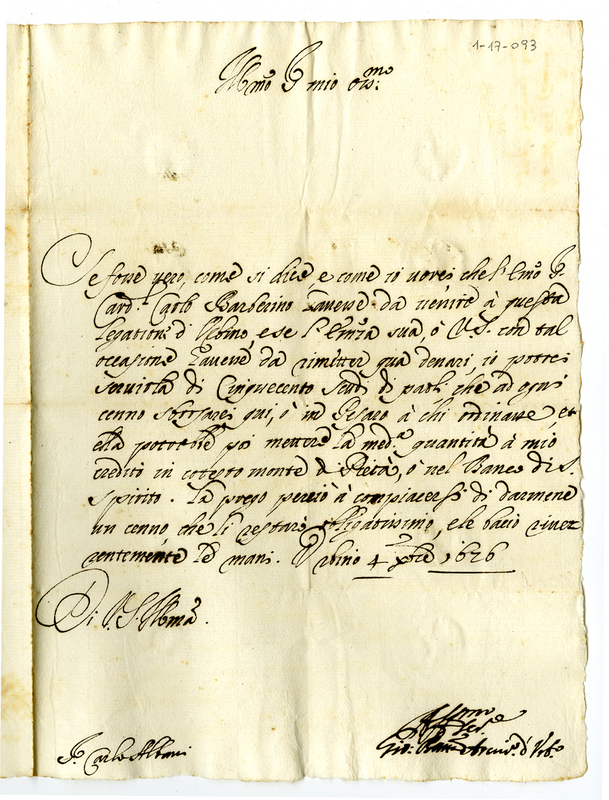 1-17-093
Ill.mo S.r mio oss.mo
Se fosse vero, come si dice, e come io vorrei che l'Em.o S.r
Card.l Carlo Barberino havesse da venire à questa
legatione d'Urbino, e se l'Em.za sua, ò V.S. con tal
occasione havesse da rimetter quà denari, io potrei
servirla di Cinquecento Scudi di paoli che ad ogni
cenno sborsarei qui, ò in Pesaro à chi ordinasse, et
ella potrebbe poi mettere la med.a quantità à mio
credito in cotesto monte di Pietà, ò nel Banco di S.
Spirito. La prego perciò à compiacersi di darmene
un cenno, che li restarò obligatissimo, e le bacio river
entemente le mani. Urbino 4 xbre 1676
Di V.S. Ill.ma
S.r Carlo Albani
Aff.mo
Ser.e
Gio: d'Urb.o